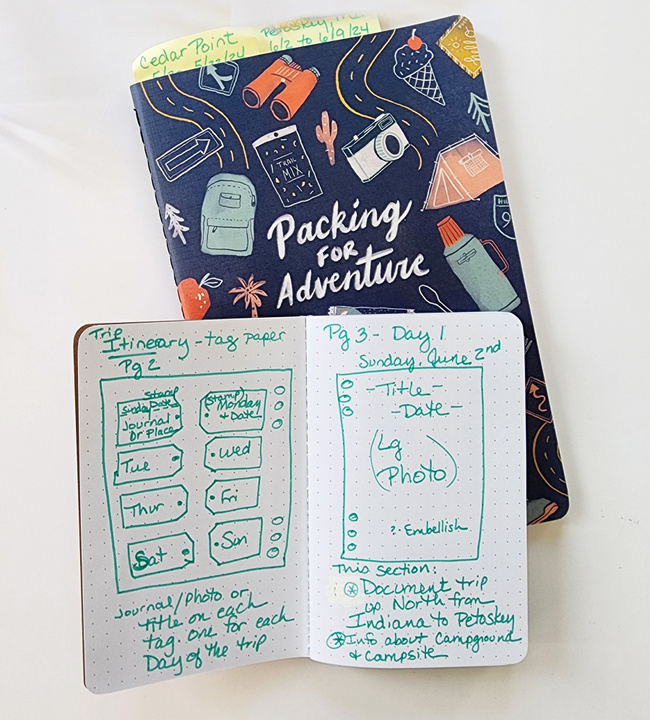 Cedar Point
Petoskey,
6/2 to 6/9/24
hello
TRAIL
MIX
Packing
FOR
Adventure
9
Trip
Itinerary - tag paper
Pg 2
stamp
Sunday Date
Journal
Or Place
(stamp)
Monday
& Date
Tue
Wed
Thur
Fri
Sat
Sun
Journal/Photo or
title on each
tag. One for each
Day of the trip
Pg 3 - Day 1
Sunday, June 2nd
-Title-
-Date-
(Lg
Photo)
? - Embellish
This section:
Document trip
up North from
Indiana to Petoskey
Info about Campground
& Campsite